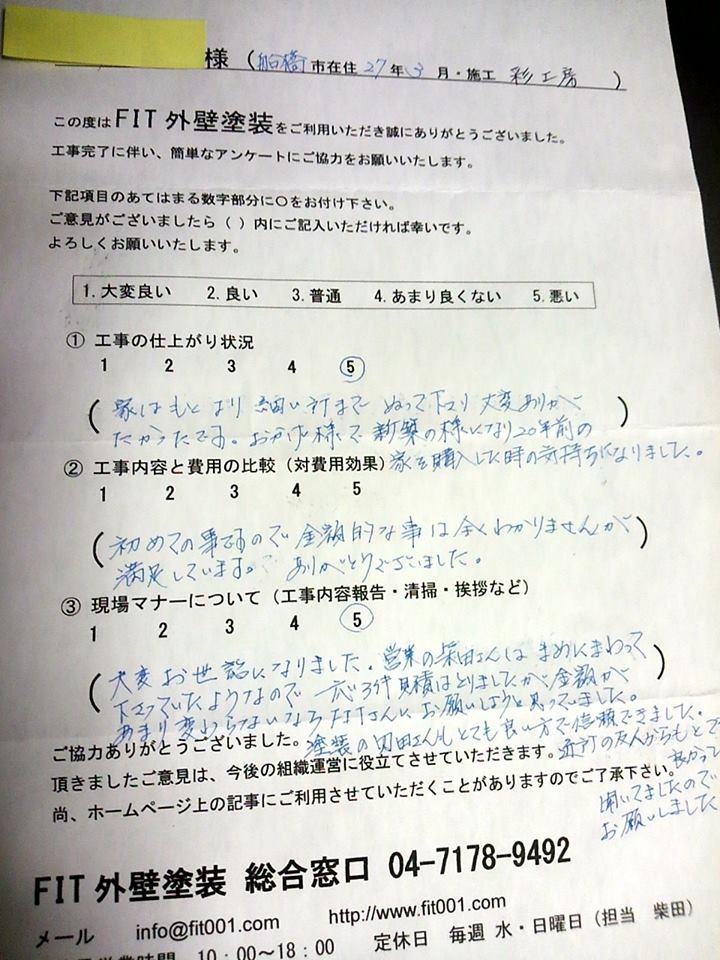 様（船橋市在住 27年 3月・施工 彩工房 ）
この度はFIT外壁塗装をご利用いただき誠にありがとうございました。
工事完了に伴い、簡単なアンケートにご協力をお願いいたします。
下記項目のあてはまる数字部分に〇をお付け下さい。
ご意見がございましたら（ ）内にご記入いただければ幸いです。
よろしくお願いいたします。
1.大変良い 2.良い 3.普通 4.あまり良くない 5.悪い
① 工事の仕上がり状況
1 2 3 4 5
（家はもとより細い所まで ぬって下さり 大変ありが
たかったです。おかげ様で 新築の様になり20年前の
家を購入した時の気持ちになりました。）
② 工事内容と費用の比較（対費用効果）
1 2 3 4 5
（初めての事ですので 金額的な事は全くわかりませんが
満足しています。 ありがとうございました。）
③ 現場マナーについて（工事内容報告・清掃・挨拶など）
1 2 3 4 5
（大変お世話になりました。営業の柴田さんは まめにまわって
下さっていたようなので 一応3件見積はとりましたが金額が
あまり変わらないなら FITさんに お願いしようと思っていました。）
塗装の 田さんもとても良い方で信頼できました。
近所の友人からもとても
良かったと
聞いてましたので
お願いしました
ご協力ありがとうございました。
頂きましたご意見は、今後の組織運営に役立てさせていただきます。
尚、ホームページ上の記事にご利用させていただくことがありますのでご了承下さい。
FIT外壁塗装 総合窓口 04-7178-9492
メール info@fit001.com http://www.fit001.com
営業時間 10：00〜18：00 定休日 毎週 水・日曜日（担当 柴田）